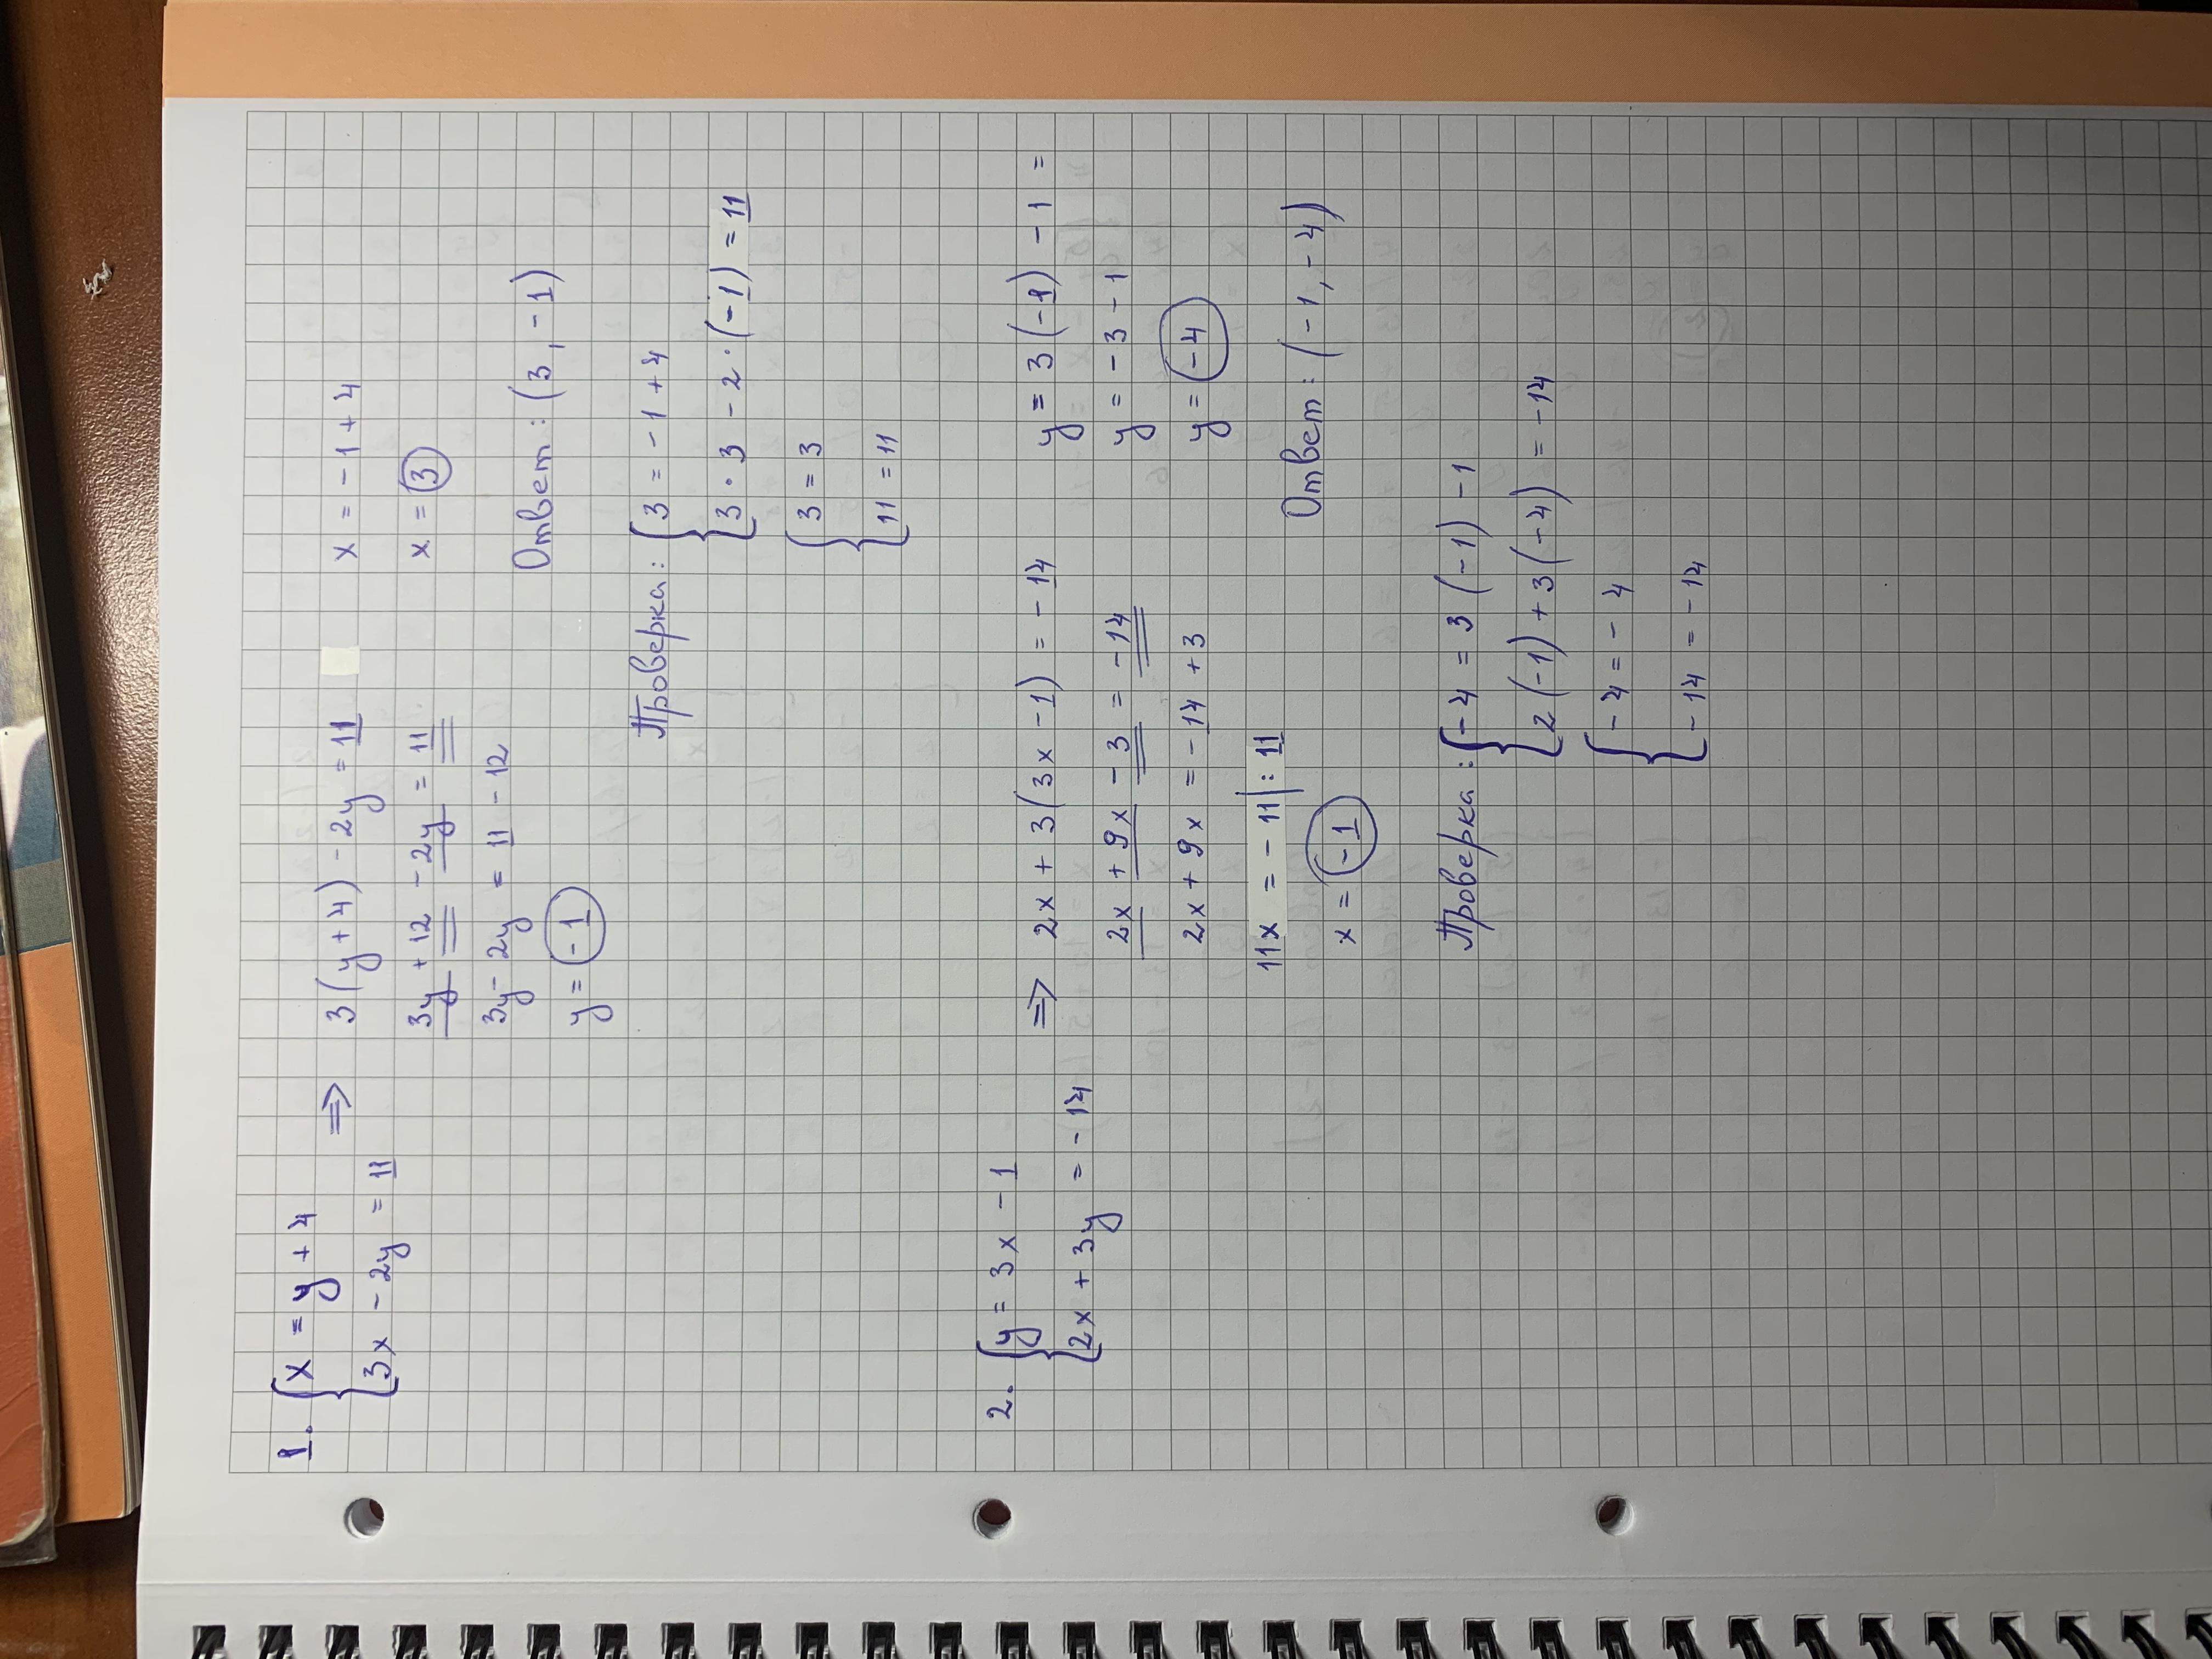 1. { x = y + 4
3x - 2y = 11
=> 3(y+4) - 2y = 11
3y + 12 - 2y = 11
3y - 2y = 11 - 12
y = -1
x = -1 + 4
x = 3
Ответ: (3, -1)
Проверка: { 3 = -1 + 4
3 · 3 - 2 · (-1) = 11
{ 3 = 3
11 = 11
2. { y = 3x - 1
2x + 3y = -14
=> 2x + 3(3x - 1) = -14
2x + 9x - 3 = -14
2x + 9x = -14 + 3
11x = -11 | : 11
x = -1
y = 3(-1) - 1 =
y = -3 - 1
y = -4
Ответ: (-1, -4)
Проверка: { -4 = 3(-1) - 1
2(-1) + 3(-4) = -14
{ -4 = -4
-14 = -14